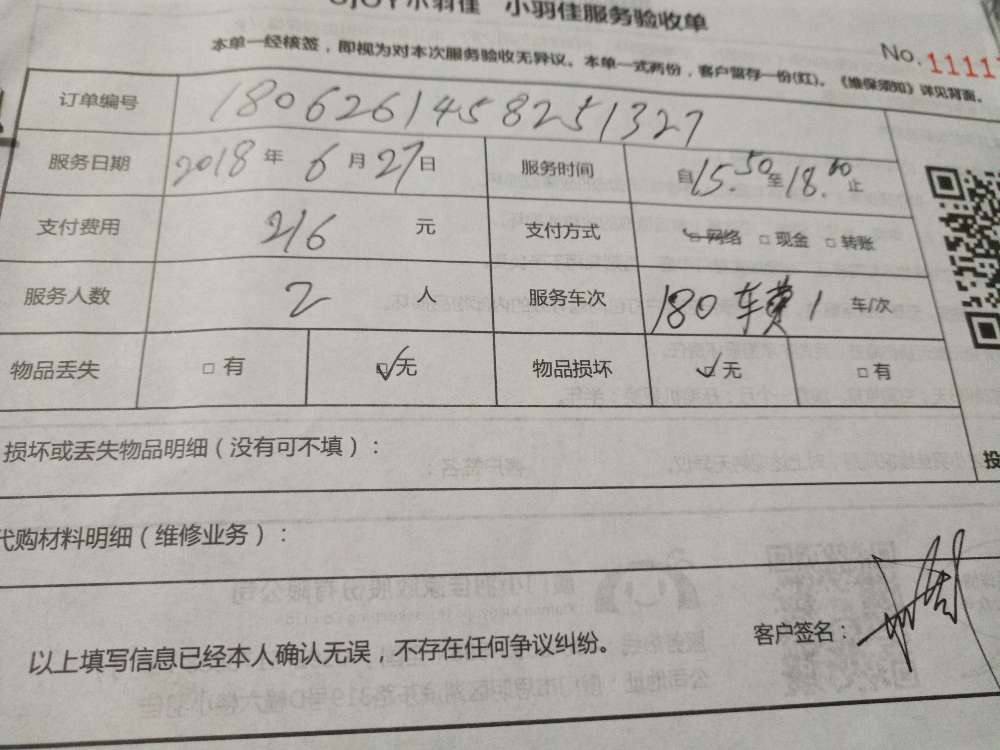 小羽佳 小羽佳服务验收单
本单一经核签，即视为对本次服务验收无异议。本单一式两份，客户留存一份(红)。《维保须知》详见背面。
No.1111
订单编号 1806261458251327
服务日期 2018 年 6 月 27 日 服务时间 自 15.50 至 18.00 止
支付费用 216 元 支付方式 ☑ 网络 □ 现金 □ 转账
服务人数 2 人 服务车次 180 车费 1 车/次
物品丢失 □ 有 ☑ 无 物品损坏 ☑ 无 □ 有
损坏或丢失物品明细（没有可不填）：
投
代购材料明细（维修业务）：
以上填写信息已经本人确认无误，不存在任何争议纠纷。 客户签名：